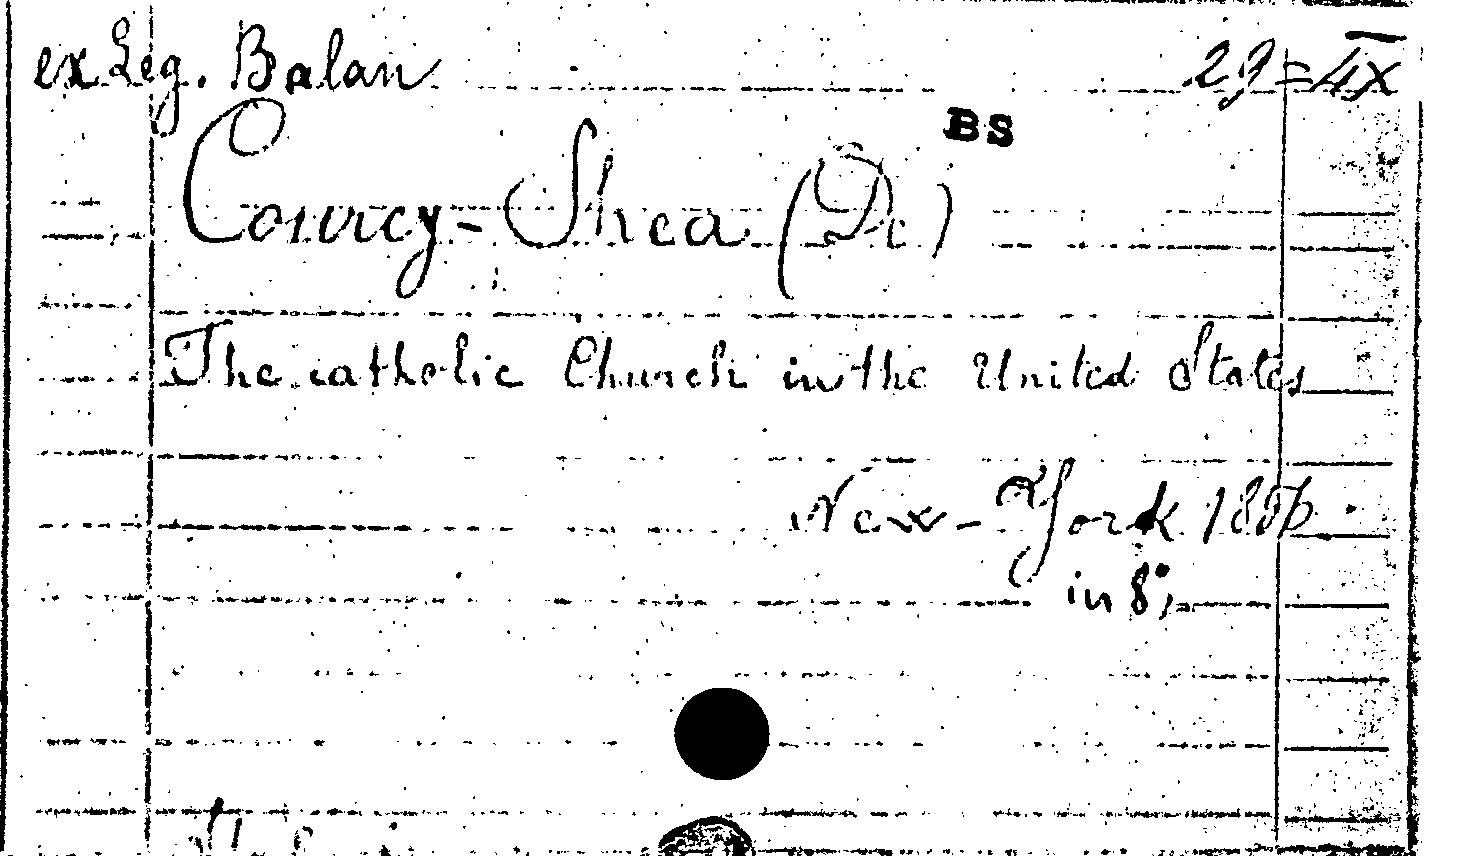 ex Leg. Balan 29=4X
BS
Courcy-Shea (De)
The catholic Church in the United States
New-York 1856.
in 8°,